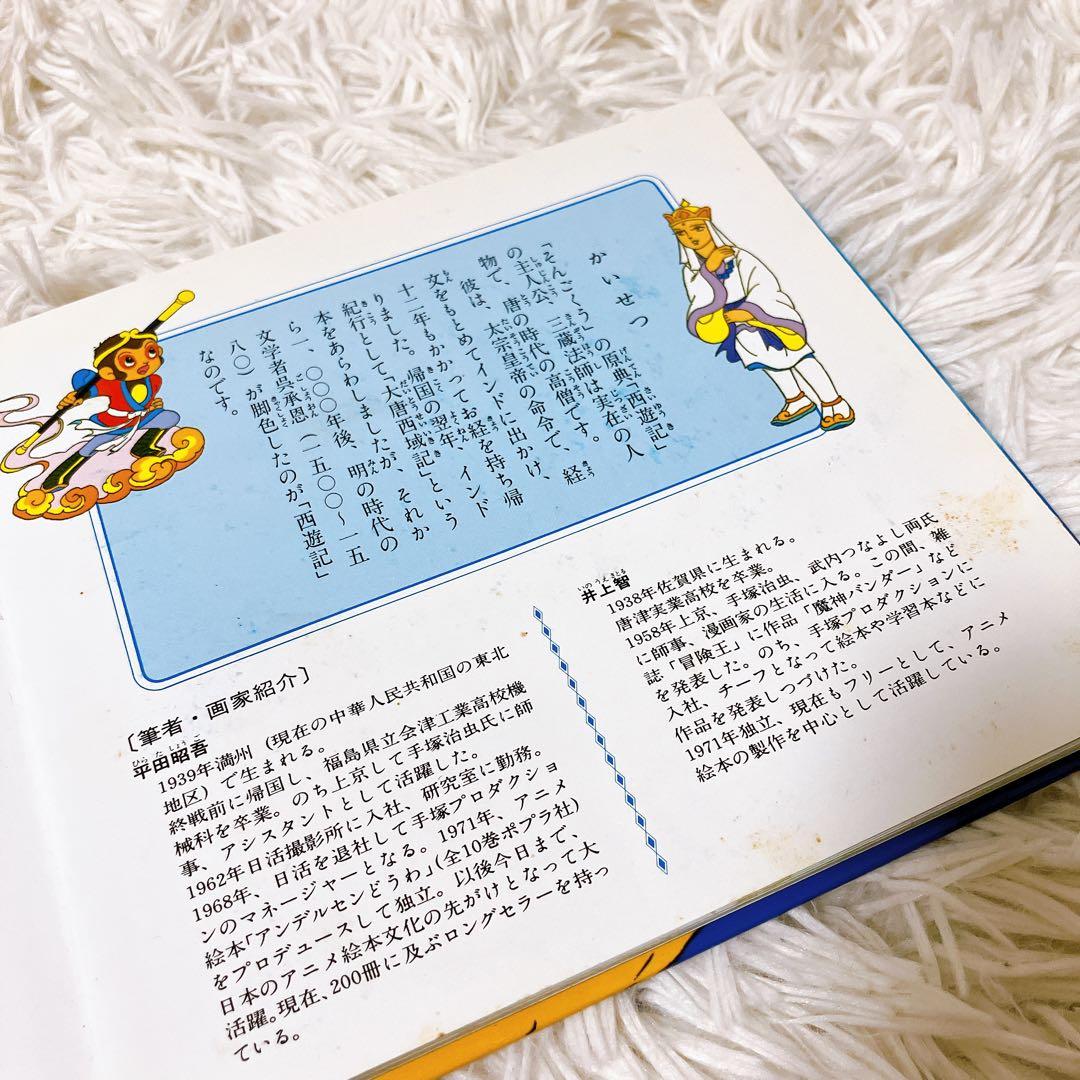 かいせつ
「そんごくう」の原典「西遊記」
の主人公、三蔵法師は実在の人
物で、唐の時代の高僧です。
彼は、太宗皇帝の命令で、経
文をもとめてインドに出かけ、
十二年もかかってお経を持ち帰
りました。帰国の翌年、インド
紀行として「大唐西域記」という
本をあらわしましたが、それか
ら一、〇〇〇年後、明の時代の
文学者呉承恩（一五〇〇～一五
八〇）が脚色したのが「西遊記」
なのです。
〔筆者・画家紹介〕
平田昭吾
1939年満州（現在の中華人民共和国の東北
地区）で生まれる。
終戦前に帰国し、福島県立会津工業高校機
械科を卒業。のち上京して手塚治虫氏に師
事、アシスタントとして活躍した。
1962年日活撮影所に入社、研究室に勤務。
1968年、日活を退社して手塚プロダクショ
ンのマネージャーとなる。1971年、アニメ
絵本「アンデルセンどうわ」（全10巻ポプラ社）
をプロデュースして独立。以後今日まで、
日本のアニメ絵本文化の先がけとなって大
活躍。現在、200冊に及ぶロングセラーを持っ
ている。
井上智
1938年佐賀県に生まれる。
唐津実業高校を卒業。
1958年上京、手塚治虫、武内つなよし両氏
に師事、漫画家の生活に入る。この間、雑
誌「冒険王」に作品「魔神バンダー」など
を発表した。のち、手塚プロダクションに
入社、チーフとなって絵本や学習本などに
作品を発表しつづけた。
1971年独立、現在もフリーとして、アニメ
絵本の製作を中心として活躍している。